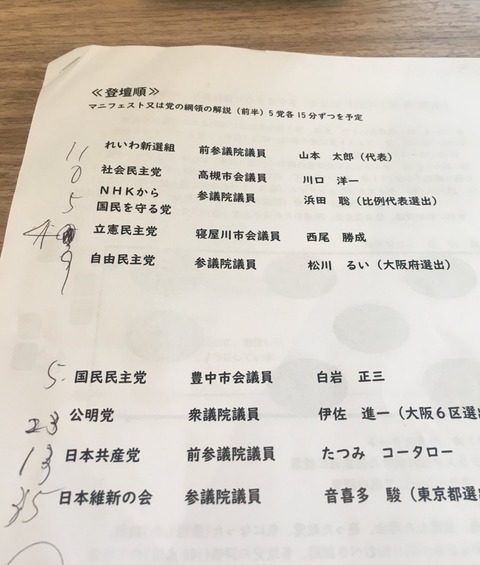 ≪登壇順≫
マニフェスト又は党の綱領の解説（前半）5党各15分ずつを予定
11 れいわ新選組 前参議院議員 山本 太郎（代表）
0 社会民主党 高槻市会議員 川口 洋一
5 NHKから国民を守る党 参議院議員 浜田 聡（比例代表選出）
立憲民主党 寝屋川市会議員 西尾 勝成
9 自由民主党 参議院議員 松川 るい（大阪府選出）
5 国民民主党 豊中市会議員 白岩 正三
23 公明党 衆議院議員 伊佐 進一（大阪6区選
13 日本共産党 前参議院議員 たつみ コータロー
35 日本維新の会 参議院議員 音喜多 駿（東京都選